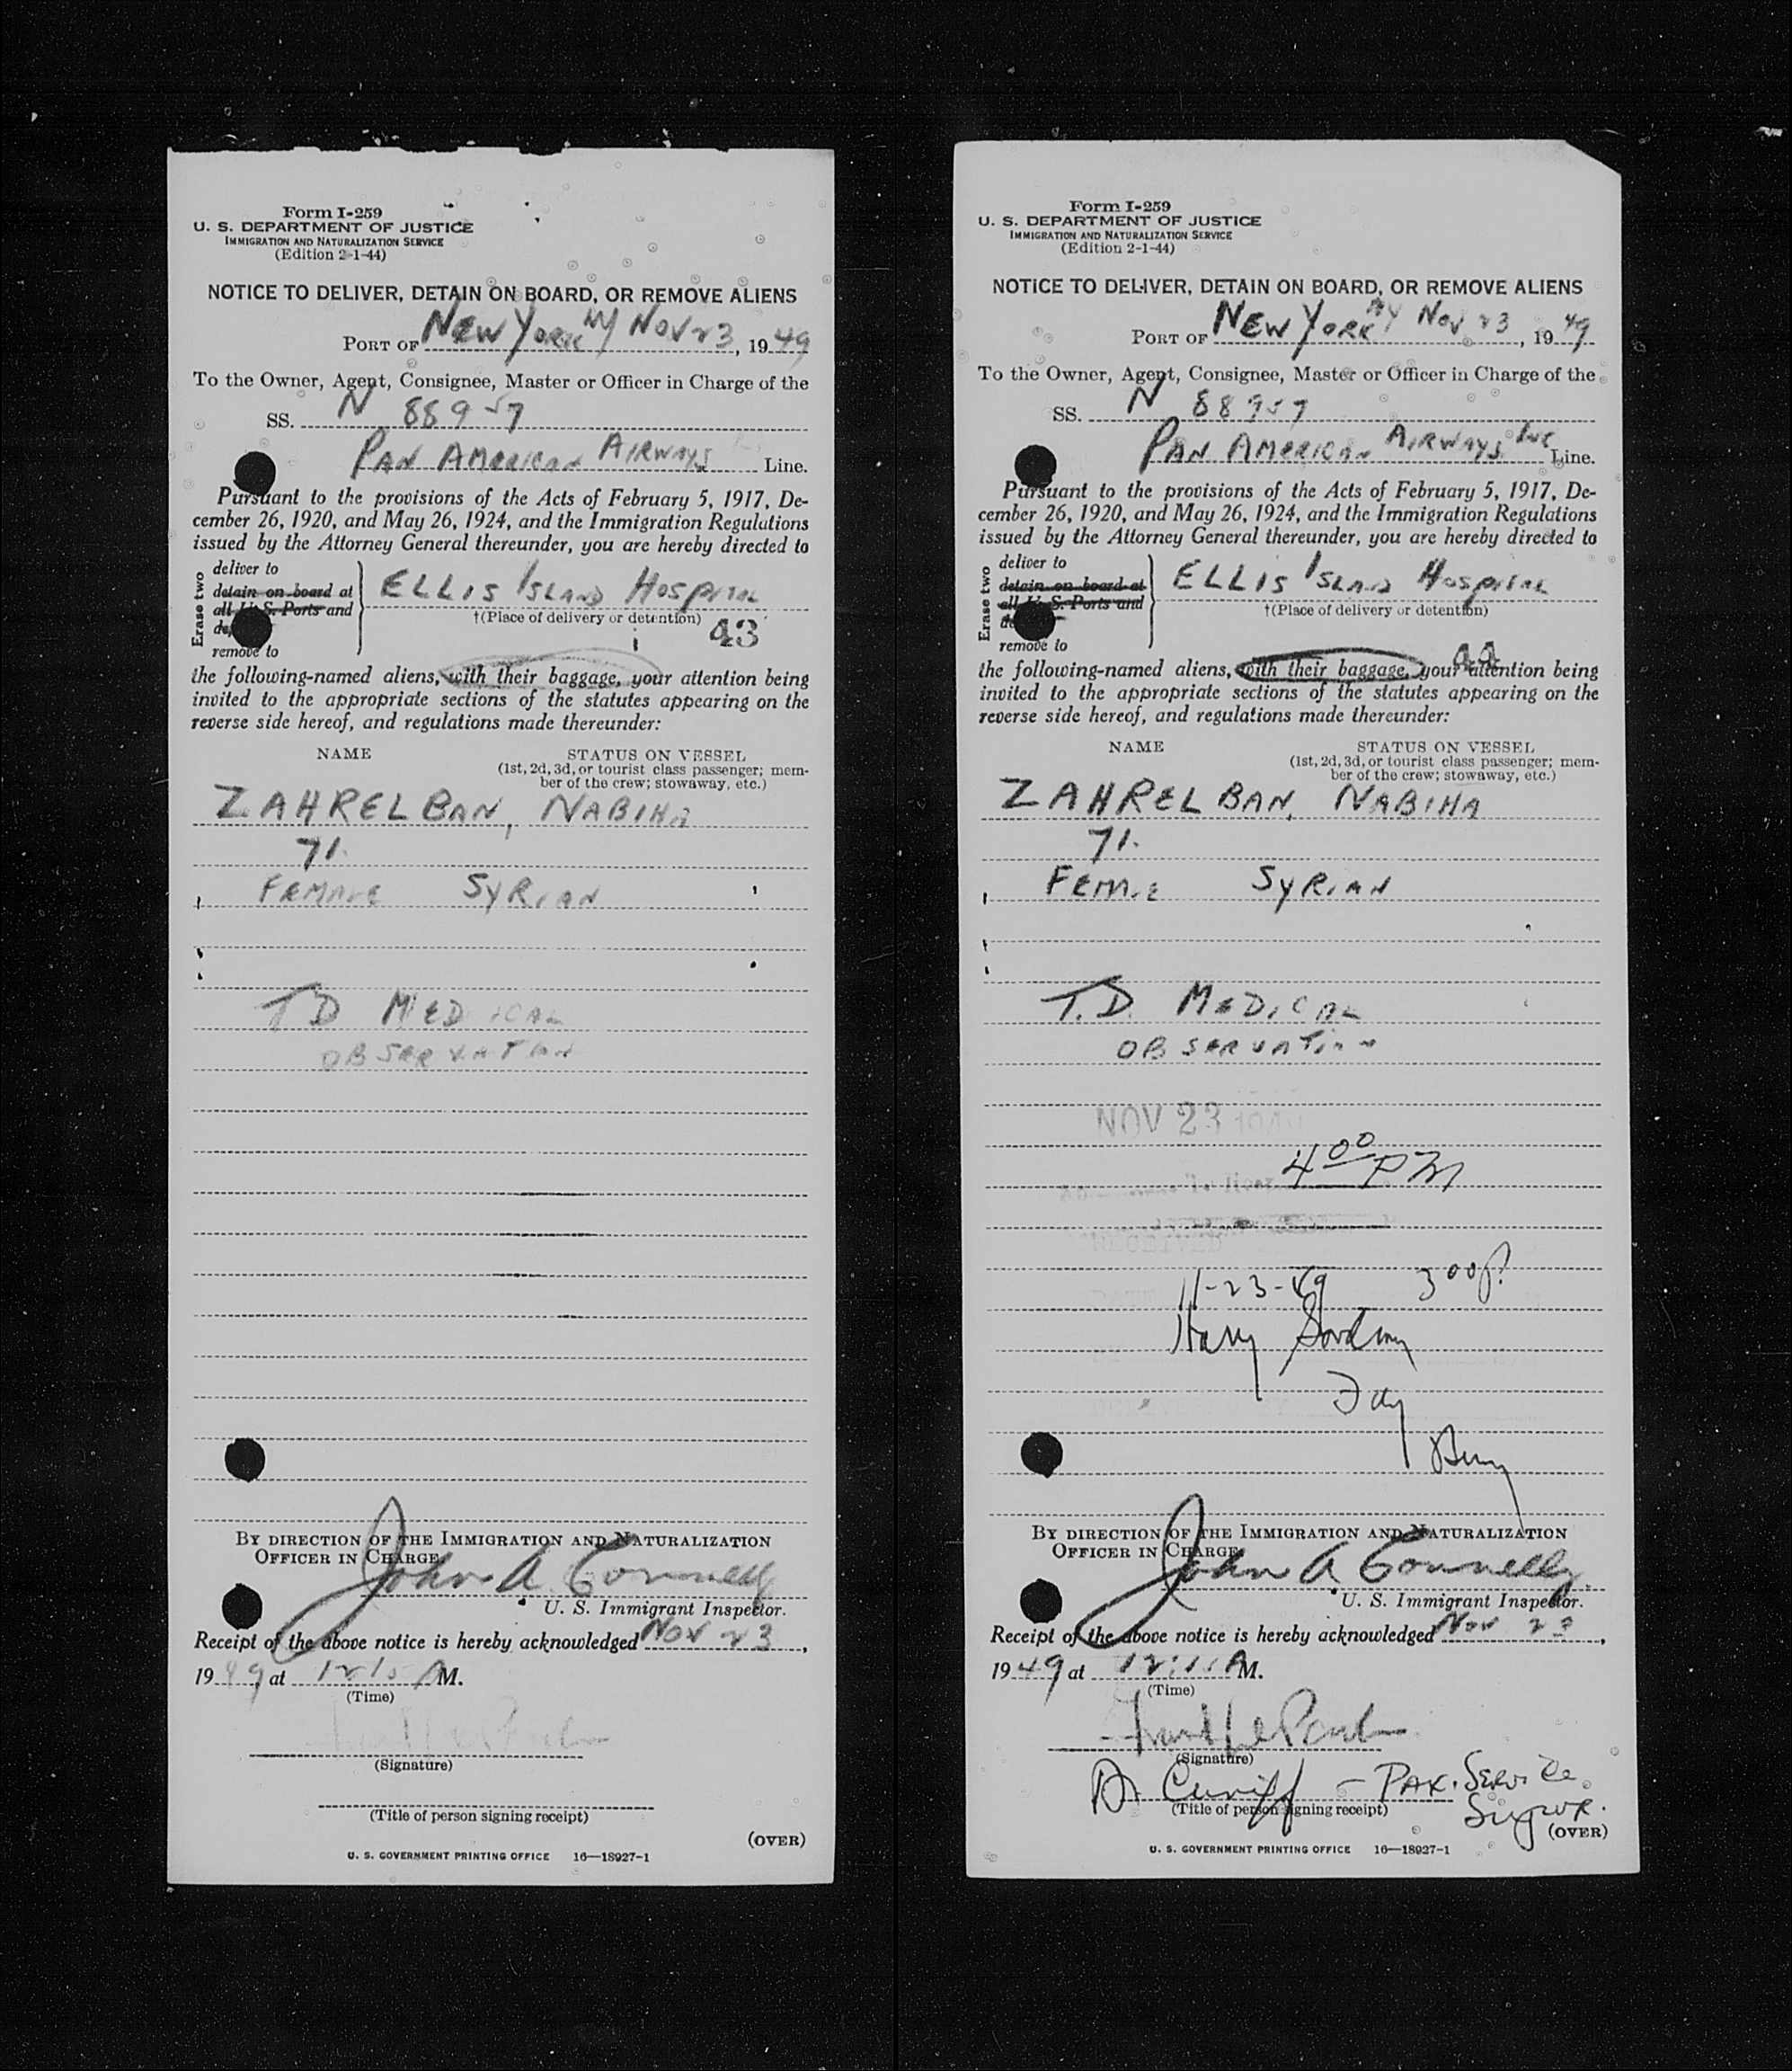 Form I-259
U. S. DEPARTMENT OF JUSTICE
IMMIGRATION AND NATURALIZATION SERVICE
(Edition 2-1-44)
NOTICE TO DELIVER, DETAIN ON BOARD, OR REMOVE ALIENS
PORT OF NEW YORK NY NOV 23, 1949
To the Owner, Agent, Consignee, Master or Officer in Charge of the
SS. N 88957
PAN AMERICAN AIRWAYS Line.
Pursuant to the provisions of the Acts of February 5, 1917, De-
cember 26, 1920, and May 26, 1924, and the Immigration Regulations
issued by the Attorney General thereunder, you are hereby directed to
Erase two
deliver to
detain on board at
all U. S. Ports and
remove to
ELLIS ISLAND HOSPITAL
†(Place of delivery or detention)
43
the following-named aliens, with their baggage, your attention being
invited to the appropriate sections of the statutes appearing on the
reverse side hereof, and regulations made thereunder:
NAME STATUS ON VESSEL
(1st, 2d, 3d, or tourist class passenger; mem-
ber of the crew; stowaway, etc.)
ZAHREL BAN, NABIHA
71.
FEMALE SYRIAN
TD MEDICAL
OBSERVATION
BY DIRECTION OF THE IMMIGRATION AND NATURALIZATION
OFFICER IN CHARGE
John A Connelly
U. S. Immigrant Inspector.
Receipt of the above notice is hereby acknowledged NOV 23,
1949 at 1215 AM.
(Time)
(Signature)
(Title of person signing receipt)
(OVER)
U. S. GOVERNMENT PRINTING OFFICE 16—18927-1
Form I-259
U. S. DEPARTMENT OF JUSTICE
IMMIGRATION AND NATURALIZATION SERVICE
(Edition 2-1-44)
NOTICE TO DELIVER, DETAIN ON BOARD, OR REMOVE ALIENS
PORT OF NEW YORK NY NOV 23, 1949
To the Owner, Agent, Consignee, Master or Officer in Charge of the
SS. N 88957
PAN AMERICAN AIRWAYS INC Line.
Pursuant to the provisions of the Acts of February 5, 1917, De-
cember 26, 1920, and May 26, 1924, and the Immigration Regulations
issued by the Attorney General thereunder, you are hereby directed to
Erase two
deliver to
detain on board at
all U. S. Ports and
remove to
ELLIS ISLAND HOSPITAL
†(Place of delivery or detention)
44
the following-named aliens, with their baggage, your attention being
invited to the appropriate sections of the statutes appearing on the
reverse side hereof, and regulations made thereunder:
NAME STATUS ON VESSEL
(1st, 2d, 3d, or tourist class passenger; mem-
ber of the crew; stowaway, etc.)
ZAHREL BAN, NABIHA
71.
FEMALE SYRIAN
T.D. MEDICAL
OBSERVATION
NOV 23
4 00 PM
11-23-49 3 00 P
Harry
BY DIRECTION OF THE IMMIGRATION AND NATURALIZATION
OFFICER IN CHARGE
John A Connelly
U. S. Immigrant Inspector.
Receipt of the above notice is hereby acknowledged Nov 23,
1949 at 12:15 AM.
(Time)
(Signature)
- PAX. SERVICE
SUPVR.
(Title of person signing receipt)
(OVER)
U. S. GOVERNMENT PRINTING OFFICE 16—18927-1